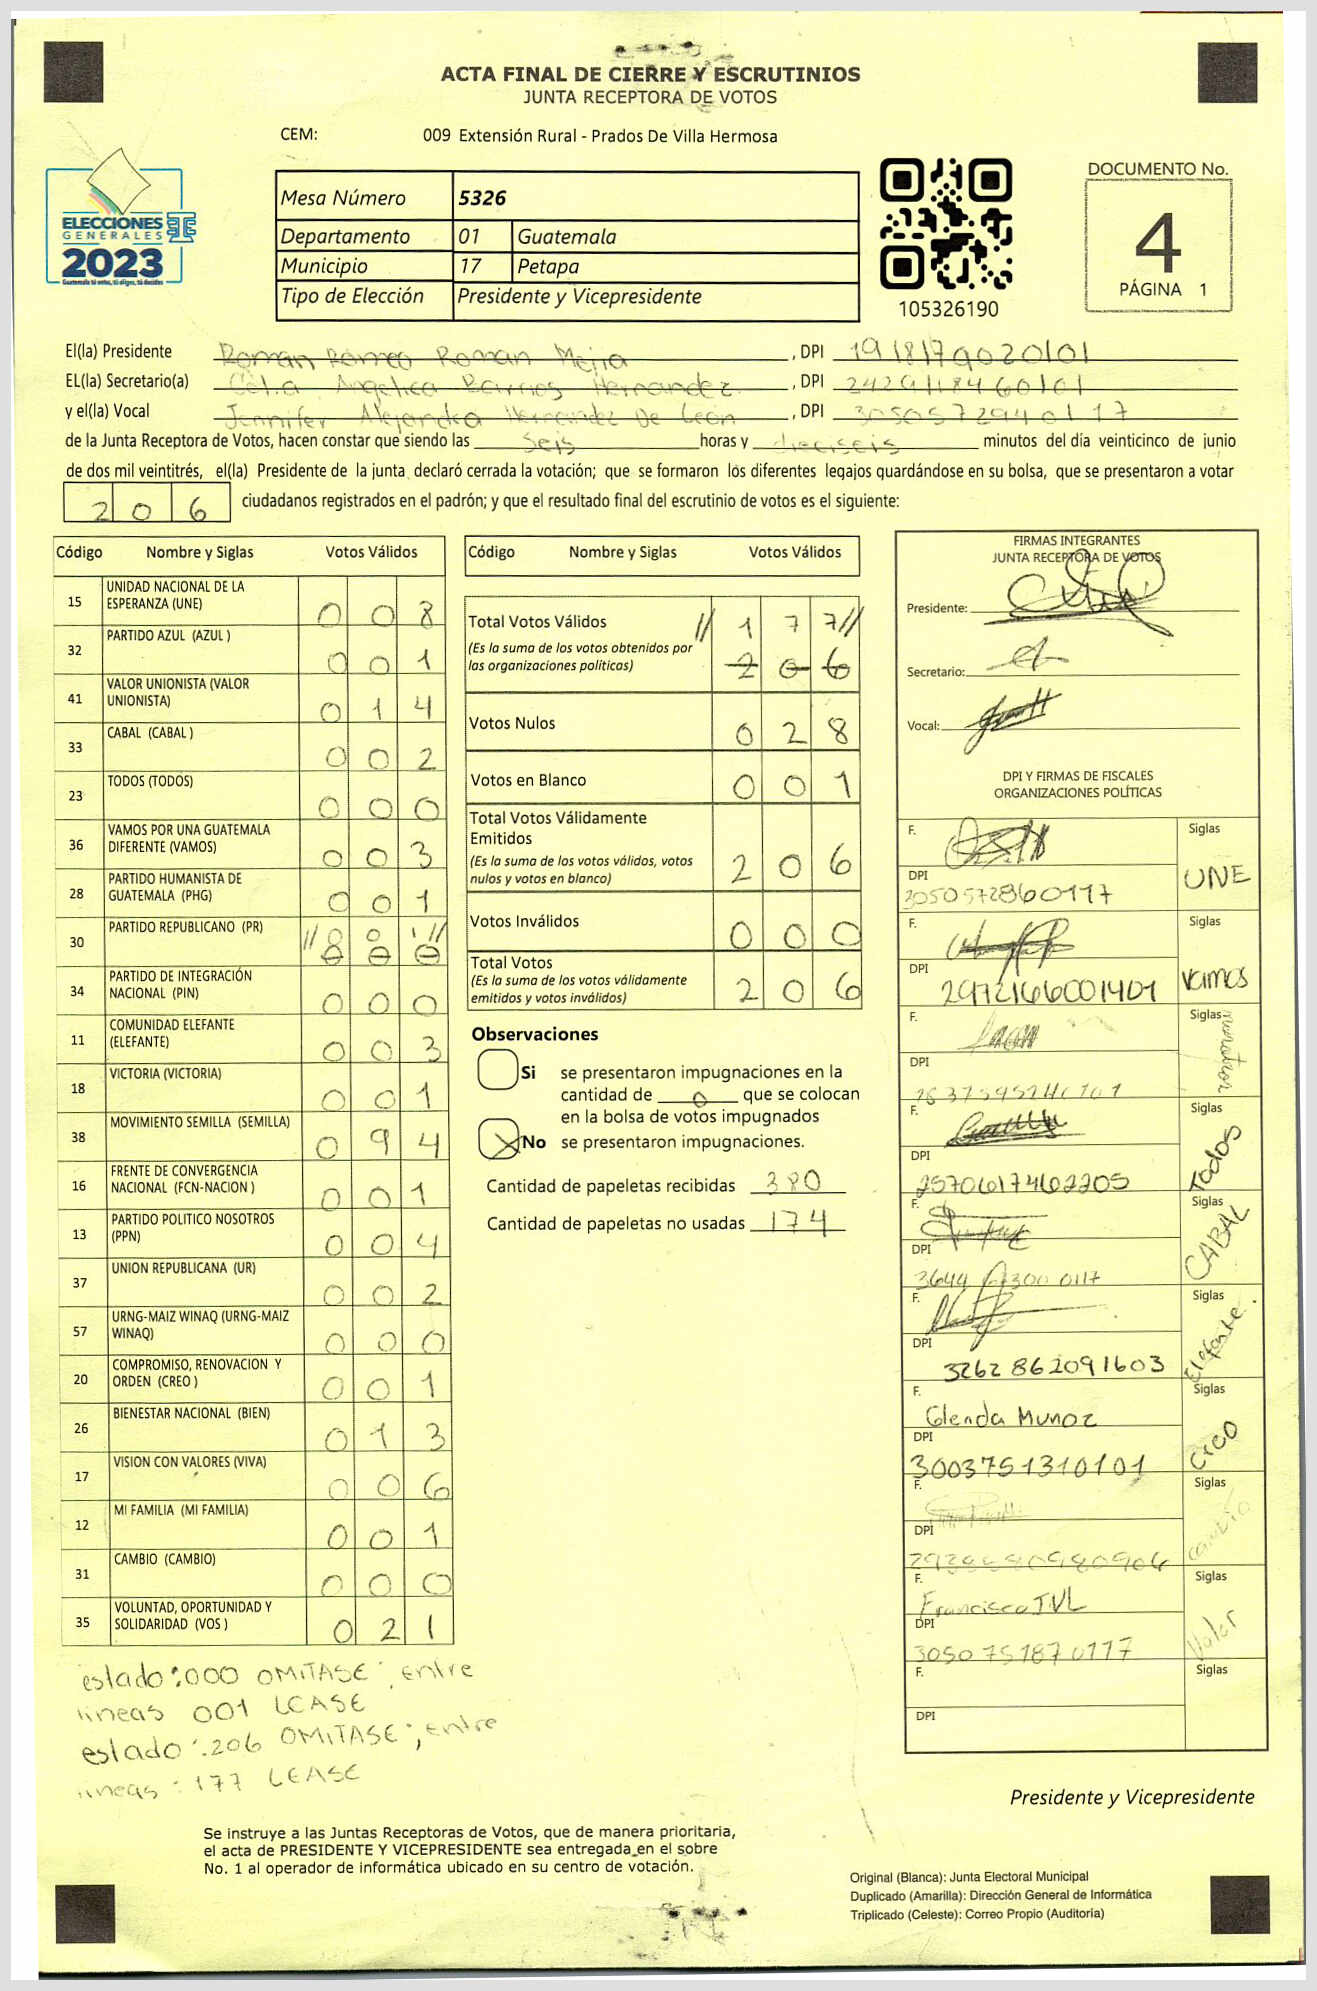 ACTA FINAL DE CIERRE Y ESCRUTINIOS
JUNTA RECEPTORA DE VOTOS
CEM: 009 Extensión Rural - Prados De Villa Hermosa
DOCUMENTO No.
4
PÁGINA 1
ELECCIONES
GENERALES
2023
Mesa Número 5326
Departamento 01 Guatemala
Municipio 17 Petapa
Tipo de Elección Presidente y Vicepresidente
105326190
El(la) Presidente Roman Romeo Roman Mejia, DPI
EL(la) Secretario(a) Angelica Barrios Hernandez, DPI
y el(la) Vocal Jennifer Alejandra Hernandez De León, DPI 3050572940117
de la Junta Receptora de Votos, hacen constar que siendo las seis horas y dieciseis minutos del día veinticinco de junio
de dos mil veintitrés, el(la) Presidente de la junta declaró cerrada la votación; que se formaron los diferentes legajos quardándose en su bolsa, que se presentaron a votar
206 ciudadanos registrados en el padrón; y que el resultado final del escrutinio de votos es el siguiente:
Código Nombre y Siglas Votos Válidos
15 UNIDAD NACIONAL DE LA ESPERANZA (UNE) 0 0 8
32 PARTIDO AZUL (AZUL ) 0 0 1
41 VALOR UNIONISTA (VALOR UNIONISTA) 0 1 4
33 CABAL (CABAL ) 0 0 2
23 TODOS (TODOS) 0 0 0
36 VAMOS POR UNA GUATEMALA DIFERENTE (VAMOS) 0 0 3
28 PARTIDO HUMANISTA DE GUATEMALA (PHG) 0 0 1
30 PARTIDO REPUBLICANO (PR) // 0 0 1 // 0 0 0
34 PARTIDO DE INTEGRACIÓN NACIONAL (PIN) 0 0 0
11 COMUNIDAD ELEFANTE (ELEFANTE) 0 0 3
18 VICTORIA (VICTORIA) 0 0 1
38 MOVIMIENTO SEMILLA (SEMILLA) 0 9 4
16 FRENTE DE CONVERGENCIA NACIONAL (FCN-NACION ) 0 0 1
13 PARTIDO POLITICO NOSOTROS (PPN) 0 0 4
37 UNION REPUBLICANA (UR) 0 0 2
57 URNG-MAIZ WINAQ (URNG-MAIZ WINAQ) 0 0 0
20 COMPROMISO, RENOVACION Y ORDEN (CREO ) 0 0 1
26 BIENESTAR NACIONAL (BIEN) 0 1 3
17 VISION CON VALORES (VIVA) 0 0 6
12 MI FAMILIA (MI FAMILIA) 0 0 1
31 CAMBIO (CAMBIO) 0 0 0
35 VOLUNTAD, OPORTUNIDAD Y SOLIDARIDAD (VOS ) 0 2 1
estado:000 OMITASE; entre
lineas 001 LEASE
estado:.206 OMITASE; entre
lineas: 177 LEASE
Código Nombre y Siglas Votos Válidos
Total Votos Válidos // 1 7 7 //
(Es la suma de los votos obtenidos por
las organizaciones políticas) 2 0 6
Votos Nulos 0 2 8
Votos en Blanco 0 0 1
Total Votos Válidamente
Emitidos
(Es la suma de los votos válidos, votos
nulos y votos en blanco) 2 0 6
Votos Inválidos 0 0 0
Total Votos
(Es la suma de los votos válidamente
emitidos y votos inválidos) 2 0 6
Observaciones
Si se presentaron impugnaciones en la
cantidad de 0 que se colocan
en la bolsa de votos impugnados
X No se presentaron impugnaciones.
Cantidad de papeletas recibidas 380
Cantidad de papeletas no usadas 174
FIRMAS INTEGRANTES
JUNTA RECEPTORA DE VOTOS
Presidente:
Secretario:
Vocal:
DPI Y FIRMAS DE FISCALES
ORGANIZACIONES POLÍTICAS
F. Siglas
DPI UNE
3050572860117
F. Siglas
DPI Vamos
2972166001401
F. Siglas
DPI nosotros
F. Siglas
DPI TODOS
2570617462205
F. Siglas
DPI CABAL
F. Siglas
DPI Elefante.
3262862091603
F. Glenda Munoz Siglas
DPI
3003751310101
F. Siglas
DPI cambio
F. Francisco JVL Siglas
DPI Valor
3050751870117
F. Siglas
DPI
Presidente y Vicepresidente
Se instruye a las Juntas Receptoras de Votos, que de manera prioritaria,
el acta de PRESIDENTE Y VICEPRESIDENTE sea entregada en el sobre
No. 1 al operador de informática ubicado en su centro de votación.
Original (Blanca): Junta Electoral Municipal
Duplicado (Amarilla): Dirección General de Informática
Triplicado (Celeste): Correo Propio (Auditoría)